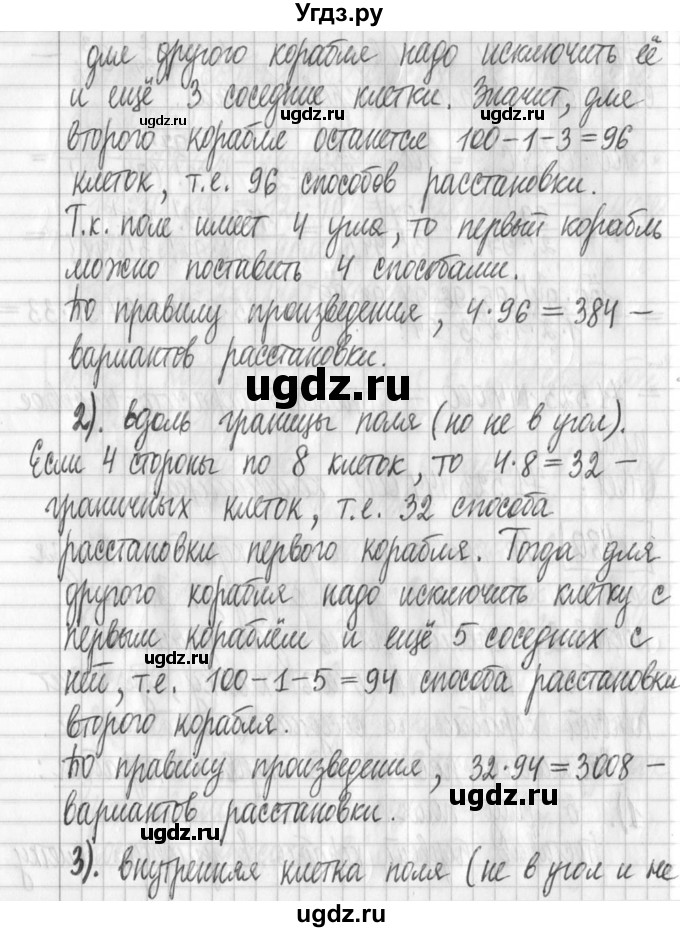 Угдз.ру
для другого корабля надо исключить её
и ещё 3 соседние клетки. Значит, для
ugdz.ru
ugdz.ru
второго корабля останется 100-1-3=96
клеток, т.е. 96 способов расстановки.
Т.к. поле имеет 4 угла, то первый корабль
можно поставить 4 способами.
По правилу произведения, 4·96=384 -
вариантов расстановки.
ugdz.ru
2). вдоль границы поля (но не в угол).
Если 4 стороны по 8 клеток, то 4·8=32 -
граничных клеток, т.е. 32 способа
расстановки первого корабля. Тогда для
другого корабля надо исключить клетку с
первым кораблём и ещё 5 соседних с
ugdz.ru
ней, т.е. 100-1-5=94 способа расстановки
второго корабля.
По правилу произведения, 32·94=3008 -
ugdz.ru
вариантов расстановки.
ugdz.ru
3). внутренняя клетка поля (не в угол и не
ugdz.ru